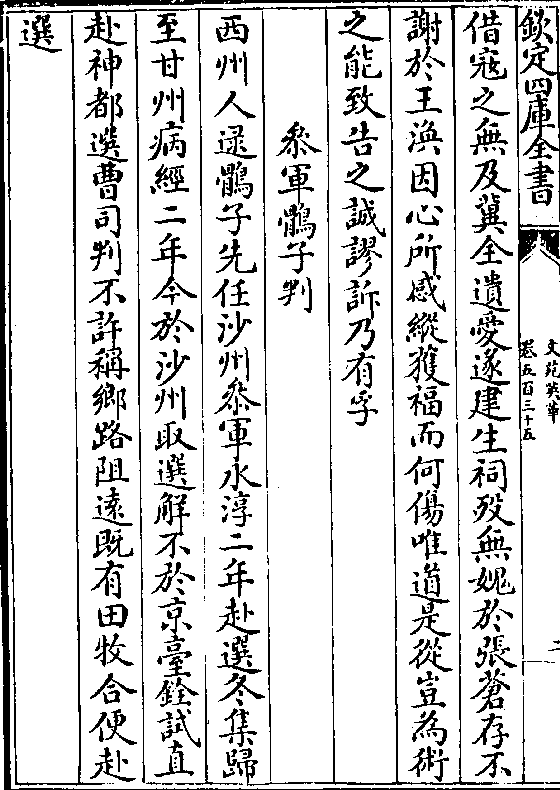 欽定四庫全書
文苑英華
卷五百三十五
二
借寇之無及冀全遺愛遂建生祠歿無媿於張蒼存不
謝於王渙因心所感縱獲福而何傷唯道是從豈為術
之能致告之誠謬訴乃有孚
叅軍鶻子判
西州人逯鶻子先任沙州叅軍永淳二年赴選冬集歸
至甘州病經二年今於沙州取選解不於京臺銓試直
赴神都選曹司判不許稱鄉路阻遠既有田牧合便赴
選